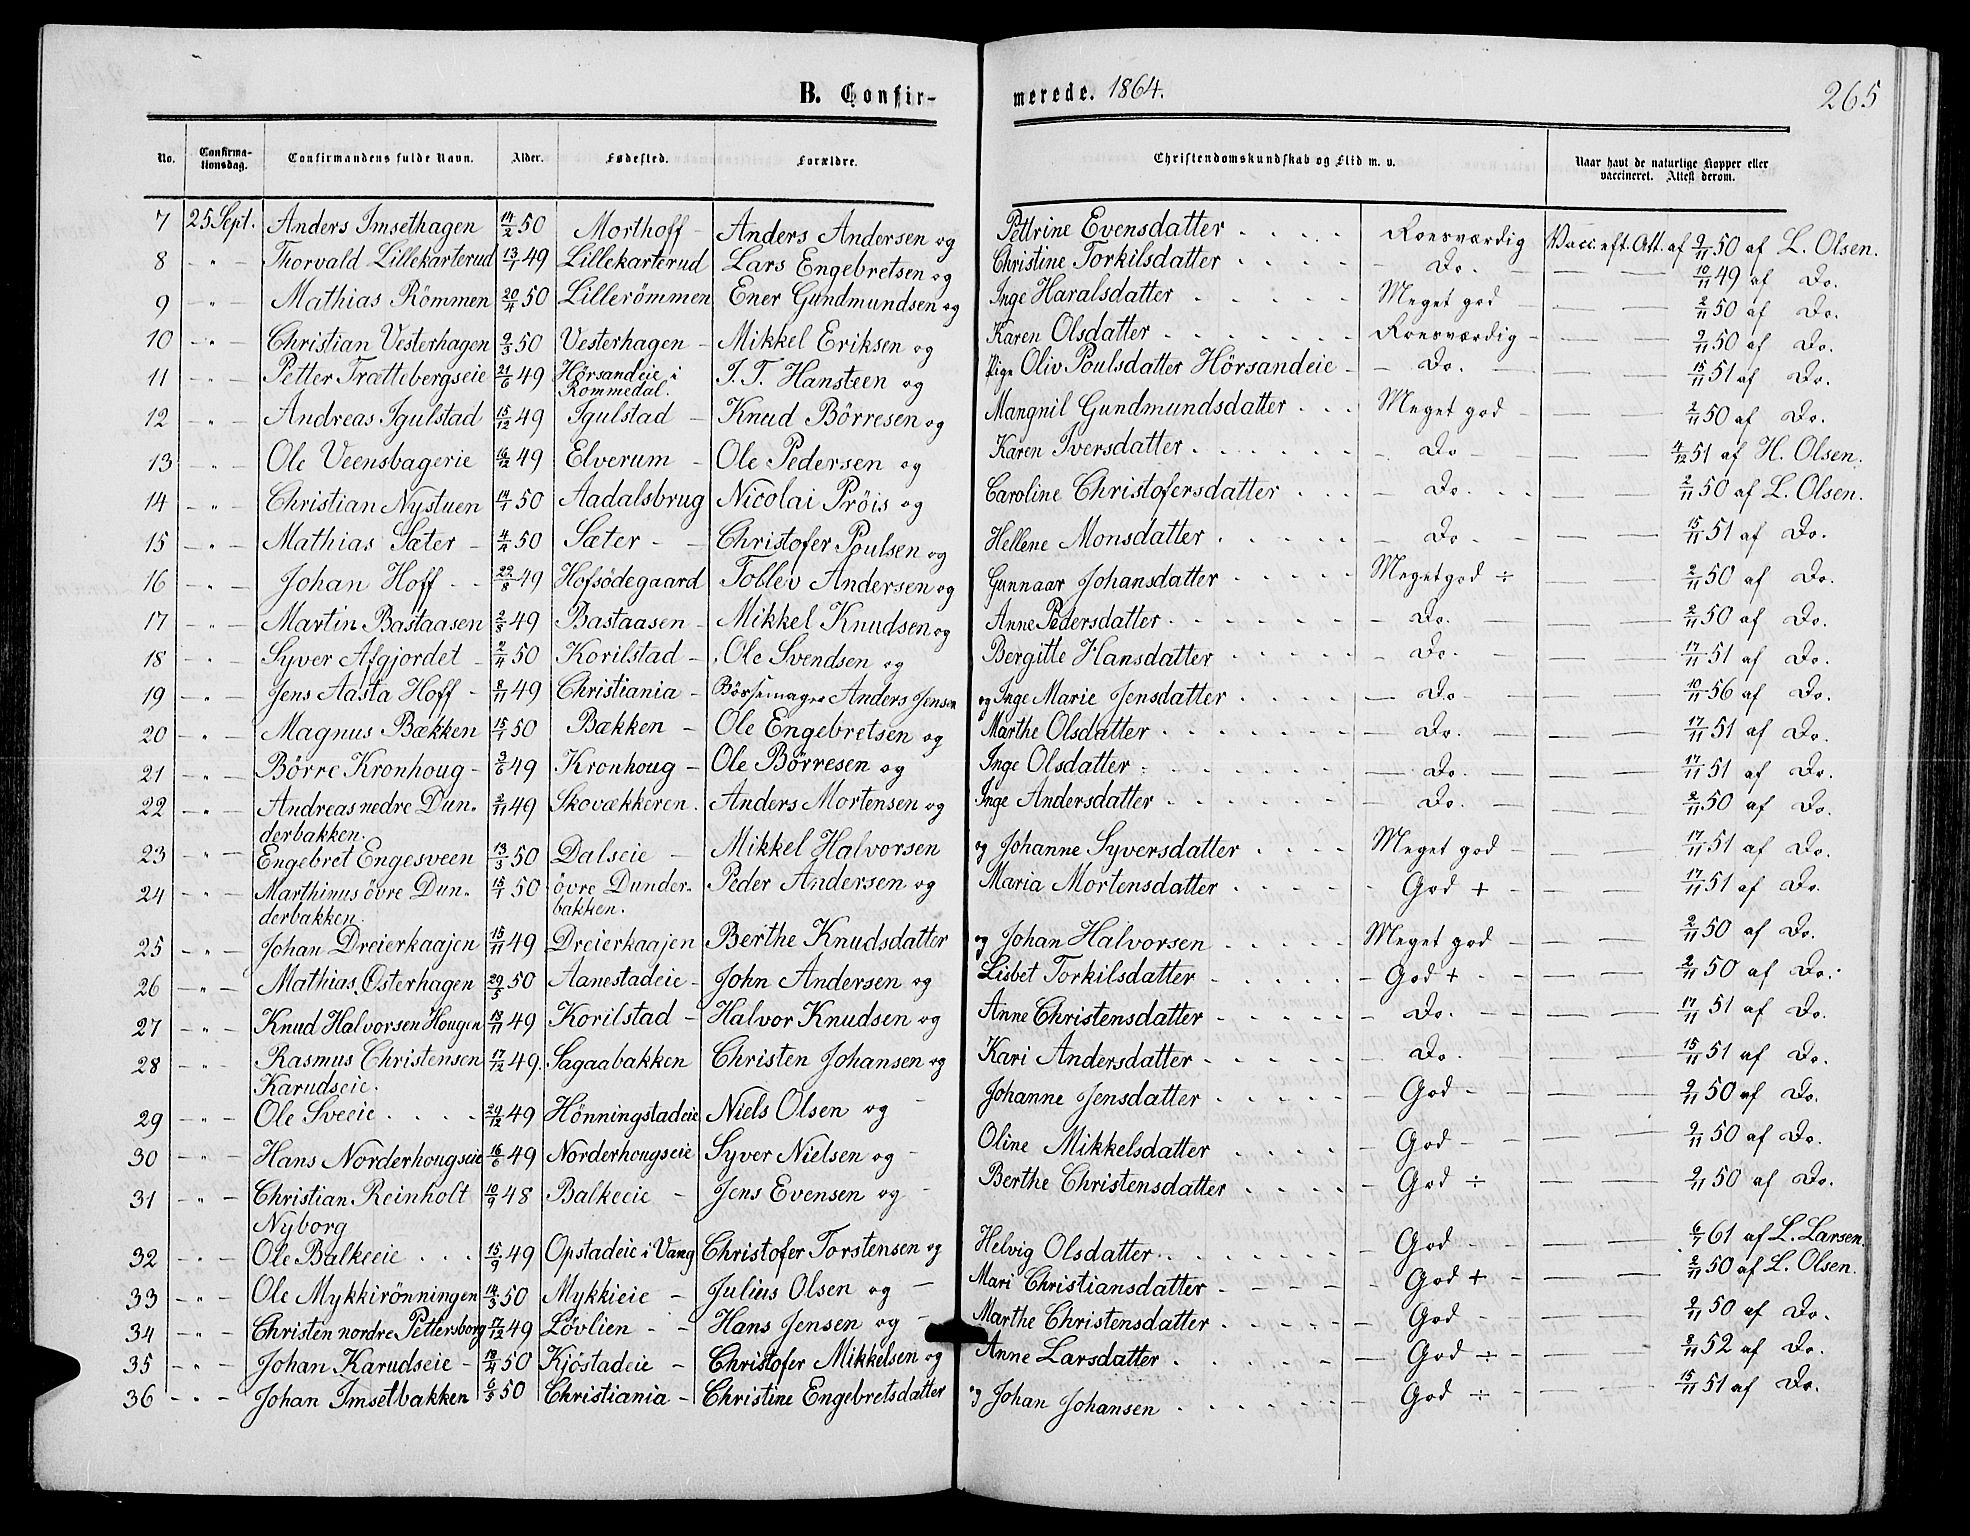 B. Confirmerede. 1864.
265
No. Confirmationsdag. Confirmandens fulde Navn. Alder. Fødested. Forældre. Christendomskundskab og Flid m. v. Naar havt de naturlige Kopper eller vaccineret. Attest derom.
7 25 Sept. Anders Imsethagen 14/2 50 Morthoff - Anders Andersen og Pettrine Evensdatter Roesværdig Vacc. eft. Att. af 2/11 50 af L. Olsen.
8 - " - Thorvald Lillekarterud 13/1 49 Lillekarterud Lars Engebretsen og Christine Torkilsdatter - Do. - 10/11 49 af Do.
9 - " - Mathias Römmen 20/4 50 Lillerömmen Ener Gundmundsen og Inge Haralsdatter Meget god - 2/11 50 af Do.
10 - " - Christian Vesterhagen 9/3 50 Vesterhagen - Mikkel Eriksen og Karen Olsdatter Roesværdig - 2/11 50 af Do.
11 - " - Petter Trættebergseie 21/6 49 Hörsandeie i Rommedal. I. T. Hansteen og Pige Oliv Poulsdatter Hörsandeie - Do. - 15/11 51 af Do.
12 - " - Andreas Igulstad 15/12 49 Igulstad - Knud Börresen og Mangnil Gundmundsdatter Meget god - 2/11 50 af Do.
13 - " - Ole Veensbagerie 16/12 49 Elverum - Ole Pedersen og Karen Iversdatter - Do - 4/12 51 af H. Olsen.
14 - " - Christian Nystuen 14/1 50 Aadalsbrug Nicolai Pröis og Caroline Christofersdatter - Do. 2/11 50 af L. Olsen.
15 - " - Mathias Sæter - 4/4 50 Sæter - - Christofer Poulsen og Hellene Monsdatter - Do - 15/11 51 af Do.
16 - " - Johan Hoff - - 29/8 49 Hofsödegaard Tollev Andersen og Gunnaar Johansdatter Meget god ÷ 2/11 50 af Do.
17 - " - Martin Bastaasen 2/8 49 Bastaasen - Mikkel Knudsen og Anne Pedersdatter - Do. 2/11 50 af Do.
18 - " - Syver Afgjordet - 2/4 50 Korilstad - Ole Svendsen og Bergitte Hansdatter - Do. 17/11 51 af Do.
19 - " - Jens Aasta Hoff - 8/11 49 Christiania - Börsemager Anders Jensen og Inge Marie Jensdatter - Do - 10/11 56 af Do.
20 - " - Magnus Bækken 15/1 50 Bækken - Ole Engebretsen og Marthe Olsdatter - Do. - 17/11 51 af Do.
21 - " - Börre Kronhoug - 9/6 49 Kronhoug - Ole Börresen og Inge Olsdatter - Do. - 17/11 51 af Do.
22 - " - Andreas nedre Dunderbakken. 2/11 49 Skovækkeren. Anders Mortensen og Inge Andersdatter - Do. - 2/11 50 af Do.
23 - " - Engebret Engesveen 13/3 50 Dalseie - Mikkel Halvorsen og Johanne Syversdatter Meget god - 17/11 51 af Do.
24 - " - Marthinus övre Dunderbakken. 15/1 50 övre Dunderbakken. Peder Andersen og Maria Mortensdatter - God + - 17/11 51 af Do.
25 - " - Johan Dreierkaajen 15/11 49 Dreierkaajen Berthe Knudsdatter og Johan Halvorsen Meget god - 2/11 50 af Do.
26 - " - Mathias Österhagen 29/5 50 Aanestadeie - John Andersen og Lisbet Torkilsdatter - God + - 2/11 50 af Do.
27 - " - Knud Halvorsen Hougen 18/11 49 Korilstad - Halvor Knudsen og Anne Christensdatter - Do. - 17/11 51 af Do.
28 - " - Rasmus Christensen Karudseie. 17/12 49. Sagaabakken Christen Johansen og Kari Andersdatter - Do. 15/11 51 af Do.
29 - " - Ole Sveeie 29/12 49 Hönningstadeie Niels Olsen og - Johanne Jensdatter - God - 2/11 50 af Do.
30 - " - Hans Norderhougseie 16/6 49 Norderhougseie Syver Nielsen og - Oline Mikkelsdatter - God - 2/11 50 af Do.
31 - " - Christian Reinholt Nyborg 10/9 48 Balkeeie - Jens Evensen og - Berthe Christensdatter - God ÷ 2/11 50 af Do.
32 - " - Ole Balkeeie 15/9 49 Opstadeie i Vang Christofer Torstensen og Helvig Olsdatter - God - 6/7 61 af L. Larsen.
33 - " - Ole Mykkirönningen 14/3 50 Mykkieie - Julius Olsen og - Mari Christiansdatter - God + - 2/11 50 af L. Olsen.
34 - " - Christen nordre Pettersborg 17/12 49 Lövlien - - Hans Jensen og - Marthe Christensdatter - God - 2/11 50 af Do.
35 - " - Johan Karudseie - 18/4 50 Kjöstadeie - Christofer Mikkelsen og Anne Larsdatter - God ÷ - 8/11 52 af Do.
36 - " - Johan Imsetbakken 6/3 50 Christiania - Christine Engebretsdatter og Johan Johansen - God ÷ - 15/11 51 af Do.